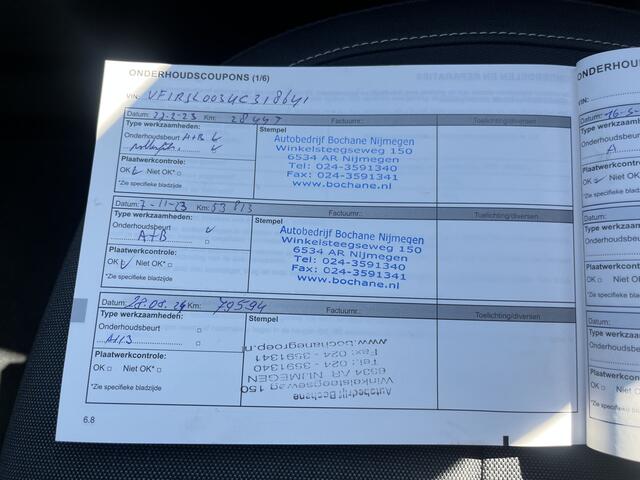 ONDERHOUDSCOUPONS (1/6)
VIN:
Datum: 22-2-23 Km: 28447 Factuurnr.: Toelichting/diversen
Type werkzaamheden:
Onderhoudsbeurt A+B
Plaatwerkcontrole:
OK Niet OK*
*Zie specifieke bladzijde
Stempel
Autobedrijf Bochane Nijmegen
Winkelsteegseweg 150
6534 AR Nijmegen
Tel: 024-3591340
Fax: 024-3591341
www.bochane.nl
Datum: 7-11-23 Km: 53813 Factuurnr.: Toelichting/diversen
Type werkzaamheden:
Onderhoudsbeurt
A+B
Plaatwerkcontrole:
OK Niet OK*
*Zie specifieke bladzijde
Stempel
Autobedrijf Bochane Nijmegen
Winkelsteegseweg 150
6534 AR Nijmegen
Tel: 024-3591340
Fax: 024-3591341
www.bochane.nl
Datum: Km: 79594 Factuurnr.: Toelichting/diversen
Type werkzaamheden:
Onderhoudsbeurt
Plaatwerkcontrole:
OK Niet OK*
*Zie specifieke bladzijde
Stempel
Autobedrijf Bochane
Winkelsteegseweg 150
6534 AR NIJMEGEN
Tel.: 024 - 3591340
Fax: 024 - 3591341
www.bochanegroep.nl
6.8
ONDERHOUD
VIN:
Datum:
Type werkzaamh
Onderhoudsbeurt
A
Plaatwerkcontro
OK Niet OK
*Zie specifieke bla
Datum:
Type werkzaamh
Onderhoudsbeur
Plaatwerkcontro
OK Niet O
*Zie specifieke bla
Datum:
Type werkzaam
Onderhoudsbeu
Plaatwerkcontr
OK Niet O
*Zie specifieke bl